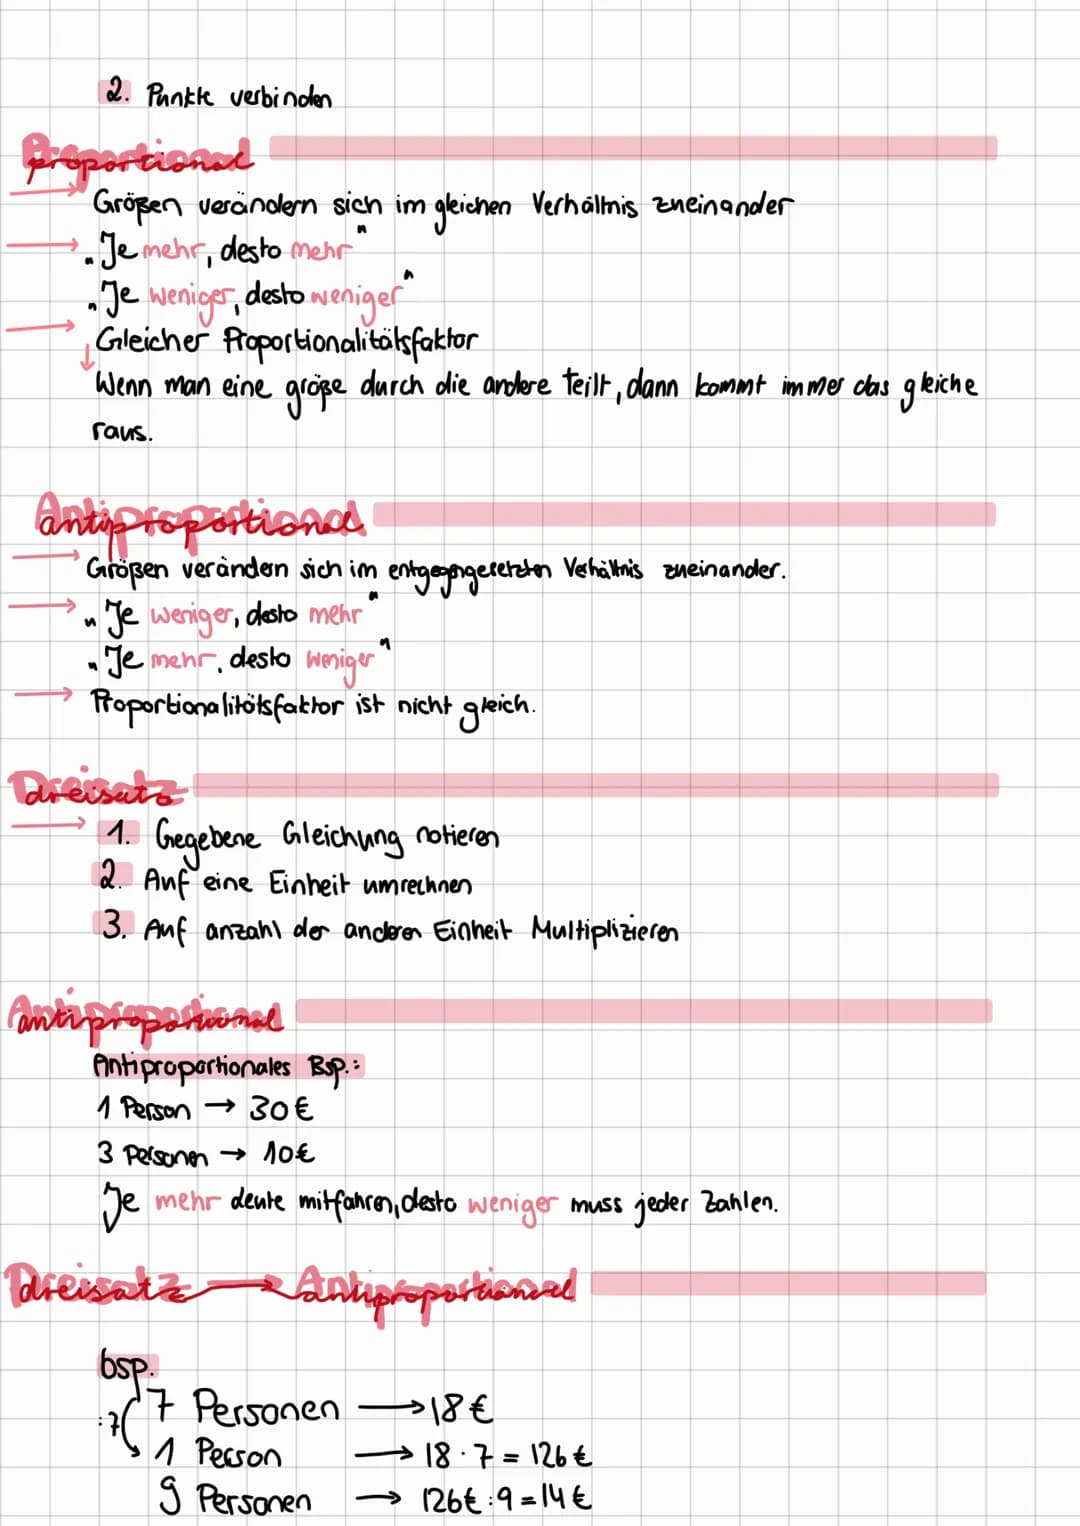 2. Punkte verbinden
Proportional
proportional
Größen verändern sich im gleichen Verhältnis zueinander
„Je mehr, desto mehr"
„Je weniger, desto weniger"
Gleicher Proportionalitätsfaktor
Wenn man eine größe durch die andere teilt, dann kommt immer das gleiche
raus.
Antiproportional
antiproportional
Größen verändern sich im entgegengesetzten Verhältnis zueinander.
„Je weniger, desto mehr"
„Je mehr, desto weniger"
Proportionalitätsfaktor ist nicht gleich.
Dreisatz
dreisatz
1. Gegebene Gleichung notieren
2. Auf eine Einheit umrechnen
3. Auf anzahl der anderen Einheit Multiplizieren
Antiproportional
antiproportional
Antiproportionales Bsp.:
1 Person → 30€
3 Personen → 10€
Je mehr leute mitfahren, desto weniger muss jeder Zahlen.
Dreisatz → Antiproportional
dreisatz → antiproportional
bsp.
7 Personen → 18€
:7
1 Person → 18 · 7 = 126€
9 Personen → 126€ : 9 = 14€